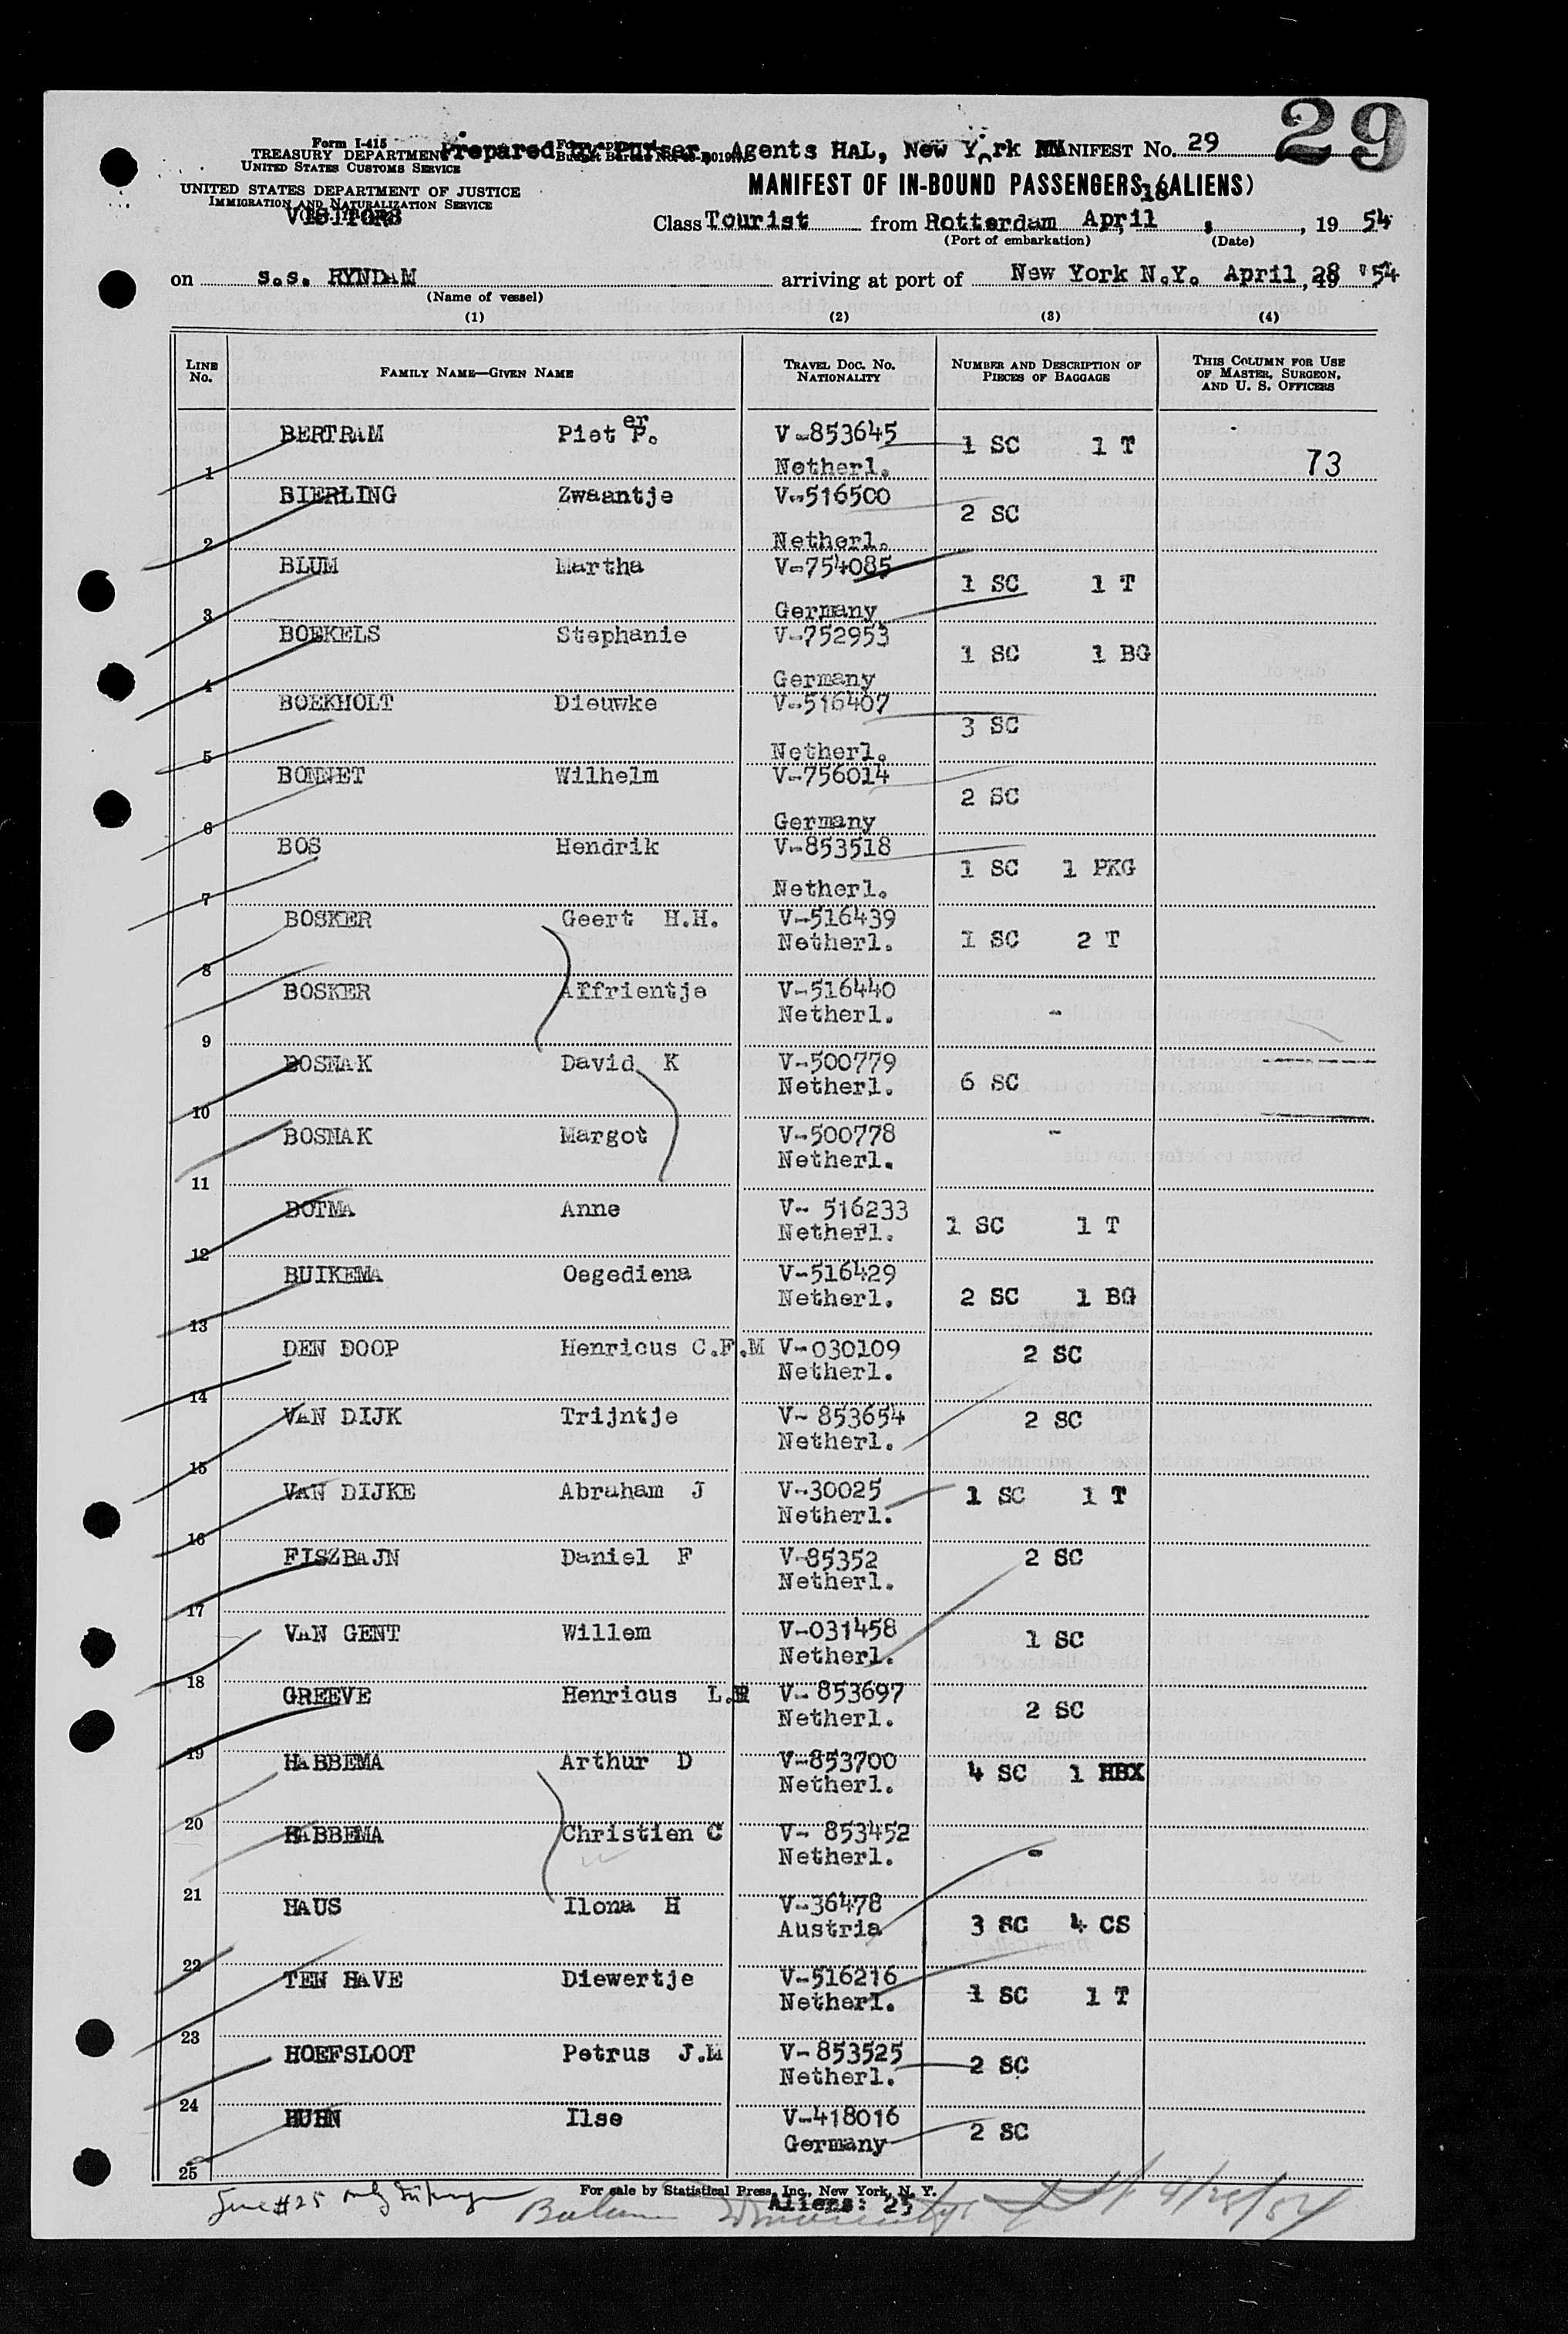 29
Form I-415
TREASURY DEPARTMENT
UNITED STATES CUSTOMS SERVICE
Prepared by Purser, Agents HAL, New York NY
MANIFEST No. 29
UNITED STATES DEPARTMENT OF JUSTICE
IMMIGRATION AND NATURALIZATION SERVICE
VISITORS
MANIFEST OF IN-BOUND PASSENGERS (ALIENS)
Class Tourist from Rotterdam April 18, 1954
(Port of embarkation) (Date)
on s.s. RYNDAM arriving at port of New York N.Y. April 28 '54
(Name of vessel)
(1) (2) (3) (4)
LINE No. FAMILY NAME—GIVEN NAME TRAVEL DOC. NO. NATIONALITY NUMBER AND DESCRIPTION OF PIECES OF BAGGAGE THIS COLUMN FOR USE OF MASTER, SURGEON, AND U. S. OFFICERS
BERTRAM Pieter P. V-853645 1 SC 1 T
1 Netherl. 73
BIERLING Zwaantje V-516500 2 SC
2 Netherl.
BLUM Martha V-754085 1 SC 1 T
3 Germany
BOEKELS Stephanie V-752953 1 SC 1 BG
4 Germany
BOEKHOLT Dieuwke V-516407 3 SC
5 Netherl.
BONNET Wilhelm V-756014 2 SC
6 Germany
BOS Hendrik V-853518 1 SC 1 PKG
7 Netherl.
BOSKER Geert H.H. V-516439
8 Netherl. 1 SC 2 T
BOSKER Affrientje V-516440
9 Netherl. -
BOSNAK David K V-500779
10 Netherl. 6 SC
BOSNAK Margot V-500778 -
11 Netherl.
BOTMA Anne V- 516233
12 Netherl. 1 SC 1 T
BUIKEMA Oegediena V-516429
13 Netherl. 2 SC 1 BG
DEN DOOP Henricus C.F.M V-030109 2 SC
14 Netherl.
VAN DIJK Trijntje V- 853654 2 SC
15 Netherl.
VAN DIJKE Abraham J V-30025 1 SC 1 T
16 Netherl.
FISZBAJN Daniel F V-85352 2 SC
17 Netherl.
VAN GENT Willem V-031458 1 SC
18 Netherl.
GREEVE Henricus V- 853697 2 SC
19 Netherl.
HABBEMA Arthur D V-853700 4 SC 1 HBX
20 Netherl.
HABBEMA Christien C V- 853452 -
21 Netherl.
HAUS Ilona H V-36478 3 SC 4 CS
22 Austria
TEN HAVE Diewertje V-516216 1 SC 1 T
23 Netherl.
HOEFSLOOT Petrus J.M V- 853525 2 SC
24 Netherl.
HUHN Ilse V-418016 2 SC
25 Germany
For sale by Statistical Press, Inc., New York, N. Y.
Aliens: 25
Line #25 only
4/28/54